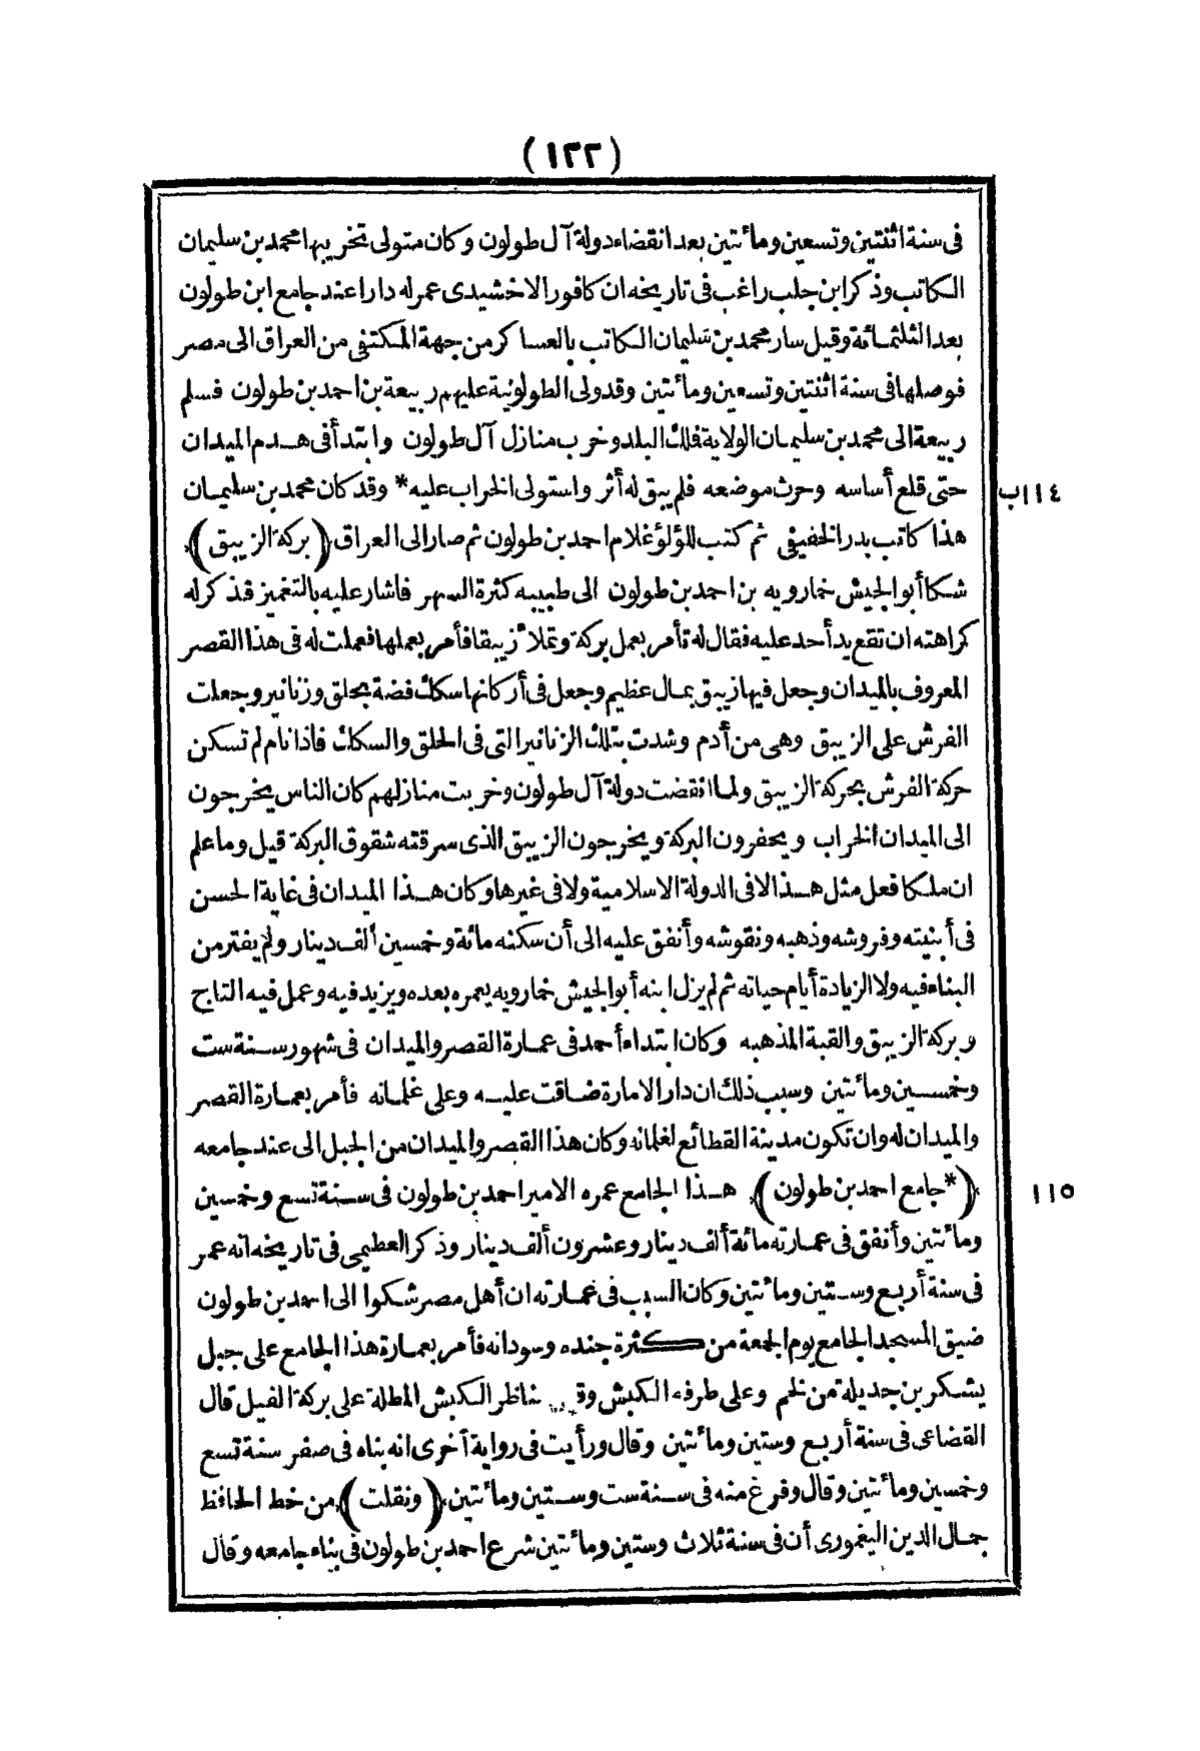 (١٢٢)
فى سنة اثنتين وتسعين ومائتين بعد انقضاء دولة آل طولون وكان متولى تخريبها محمد بن سليمان
الكاتب وذكر ابن جلب راغب فى تاريخه ان كافور الاخشيدى عمر له دارا عند جامع ابن طولون
بعد الثلثمائة وقيل سار محمد بن سليمان الكاتب بالعساكر من جهة المكتفى من العراق الى مصر
فوصلها فى سنة اثنتين وتسعين ومائتين وقد ولى الطولونية عليهم ربيعة بن احمد بن طولون فسلم
ربيعة الى محمد بن سليمان الولاية فملك البلد وخرب منازل آل طولون وابتدأ فى هدم الميدان
حتى قلع أساسه وحرث موضعه فلم يبق له أثر واستولى الخراب عليه* وقد كان محمد بن سليمان
١١٤ب
هذا كاتب بدر الخفيفى ثم كتب للؤلؤ غلام احمد بن طولون ثم صار الى العراق (بركة الزيبق)
شكا أبو الجيش خمارويه بن احمد بن طولون الى طبيبه كثرة السهر فاشار عليه بالتغميز فذكر له
كراهته ان تقع يد أحد عليه فقال له تأمر بعمل بركة وتملأ زيبقا فأمر بعملها فعملت له فى هذا القصر
المعروف بالميدان وجعل فيها زيبق بمال عظيم وجعل فى أركانها سكك فضة بحلق وزنانير وجعلت
الفرش على الزيبق وهى من أدم وشدت بتلك الزنانير التى فى الحلق والسكك فاذا نام لم تسكن
حركة الفرش بحركة الزيبق ولما انقضت دولة آل طولون وخربت منازلهم كان الناس يخرجون
الى الميدان الخراب ويحفرون البركة ويخرجون الزيبق الذى سرقته شقوق البركة قيل وما علم
ان ملكا فعل مثل هذا لا فى الدولة الاسلامية ولا فى غيرها وكان هذا الميدان فى غاية الحسن
فى أبنيته وفروشه وذهبه ونقوشه وأنفق عليه الى أن سكنه مائة وخمسين ألف دينار ولم يفتر من
البناء فيه ولا الزيادة أيام حياته ثم لم يزل ابنه أبو الجيش خمارويه يعمره بعده ويزيد فيه وعمل فيه التاج
وبركة الزيبق والقبة المذهبه وكان ابتداء أحمد فى عمارة القصر والميدان فى شهور سنة ست
وخمسين ومائتين وسبب ذلك ان دار الامارة ضاقت عليه وعلى غلمانه فأمر بعمارة القصر
والميدان له وان تكون مدينة القطائع لغلمانه وكان هذا القصر والميدان من الجبل الى عند جامعه
(*جامع احمد بن طولون) هذا الجامع عمره الامير احمد بن طولون فى سنة تسع وخمسين
١١٥
ومائتين وأنفق فى عمارته مائة ألف دينار وعشرون ألف دينار وذكر العظيمى فى تاريخه انه عمر
فى سنة أربع وستين ومائتين وكان السبب فى عمارته ان أهل مصر شكوا الى احمد بن طولون
ضيق المسجد الجامع يوم الجمعة من كثرة جنده وسودانه فأمر بعمارة هذا الجامع على جبل
يشكر بن جديلة من لخم وعلى طرفه الكبش مناظر الكبش المطلة على بركة الفيل قال
القضاعى فى سنة أربع وستين ومائتين وقال ورأيت فى رواية أخرى انه بناه فى صفر سنة تسع
وخمسين ومائتين وقال وفرغ منه فى سنة ست وستين ومائتين (ونقلت) من خط الحافظ
جمال الدين اليغمورى أن فى سنة ثلاث وستين ومائتين شرع احمد بن طولون فى بناء جامعه وقال